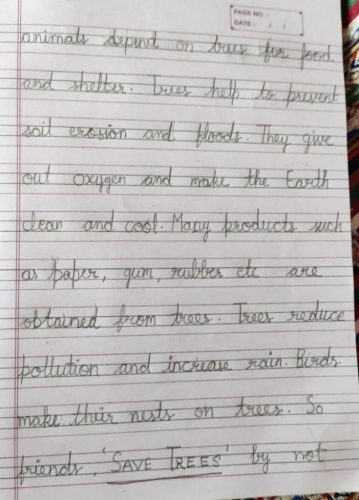 PAGE NO. :
DATE : / /
animals depend on trees for food
and shelter. Trees help to prevent
soil erosion and floods. They give
out oxygen and make the Earth
clean and cool. Many products such
as paper, gum, rubber etc are
obtained from trees. Trees reduce
pollution and increase rain. Birds
make their nests on trees. So
friends, 'SAVE TREES' by not